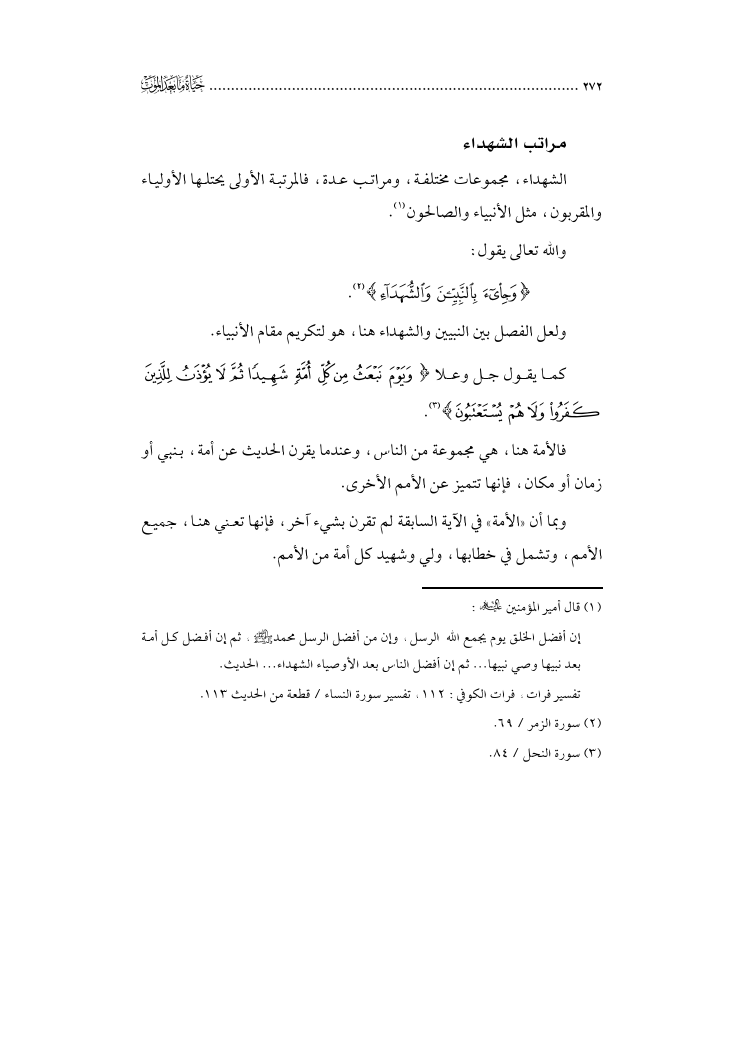 ٢٧٢ ........................................................................................ حياة ما بعد الموت
مراتب الشهداء
الشهداء، مجموعات مختلفة، ومراتب عدة، فالمرتبة الأولى يحتلها الأولياء
والمقربون، مثل الأنبياء والصالحون(١).
والله تعالى يقول:
﴿وَجِاْىٓءَ بِٱلنَّبِيِّـۧنَ وَٱلشُّهَدَآءِ﴾(٢).
ولعل الفصل بين النبيين والشهداء هنا، هو لتكريم مقام الأنبياء.
كما يقول جل وعلا ﴿وَيَوْمَ نَبْعَثُ مِن كُلِّ أُمَّةٍ شَهِيدًا ثُمَّ لَا يُؤْذَنُ لِلَّذِينَ
كَفَرُوا۟ وَلَا هُمْ يُسْتَعْتَبُونَ﴾(٣).
فالأمة هنا، هي مجموعة من الناس، وعندما يقرن الحديث عن أمة، بنبي أو
زمان أو مكان، فإنها تتميز عن الأمم الأخرى.
وبما أن «الأمة» في الآية السابقة لم تقرن بشيء آخر، فإنها تعني هنا، جميع
الأمم، وتشمل في خطابها، ولي وشهيد كل أمة من الأمم.
(١) قال أمير المؤمنين عليه السلام :
إن أفضل الخلق يوم يجمع الله الرسل، وإن من أفضل الرسل محمد ﷺ، ثم إن أفضل كل أمة
بعد نبيها وصي نبيها... ثم إن أفضل الناس بعد الأوصياء الشهداء... الحديث.
تفسير فرات، فرات الكوفي: ١١٢، تفسير سورة النساء / قطعة من الحديث ١١٣.
(٢) سورة الزمر / ٦٩.
(٣) سورة النحل / ٨٤.